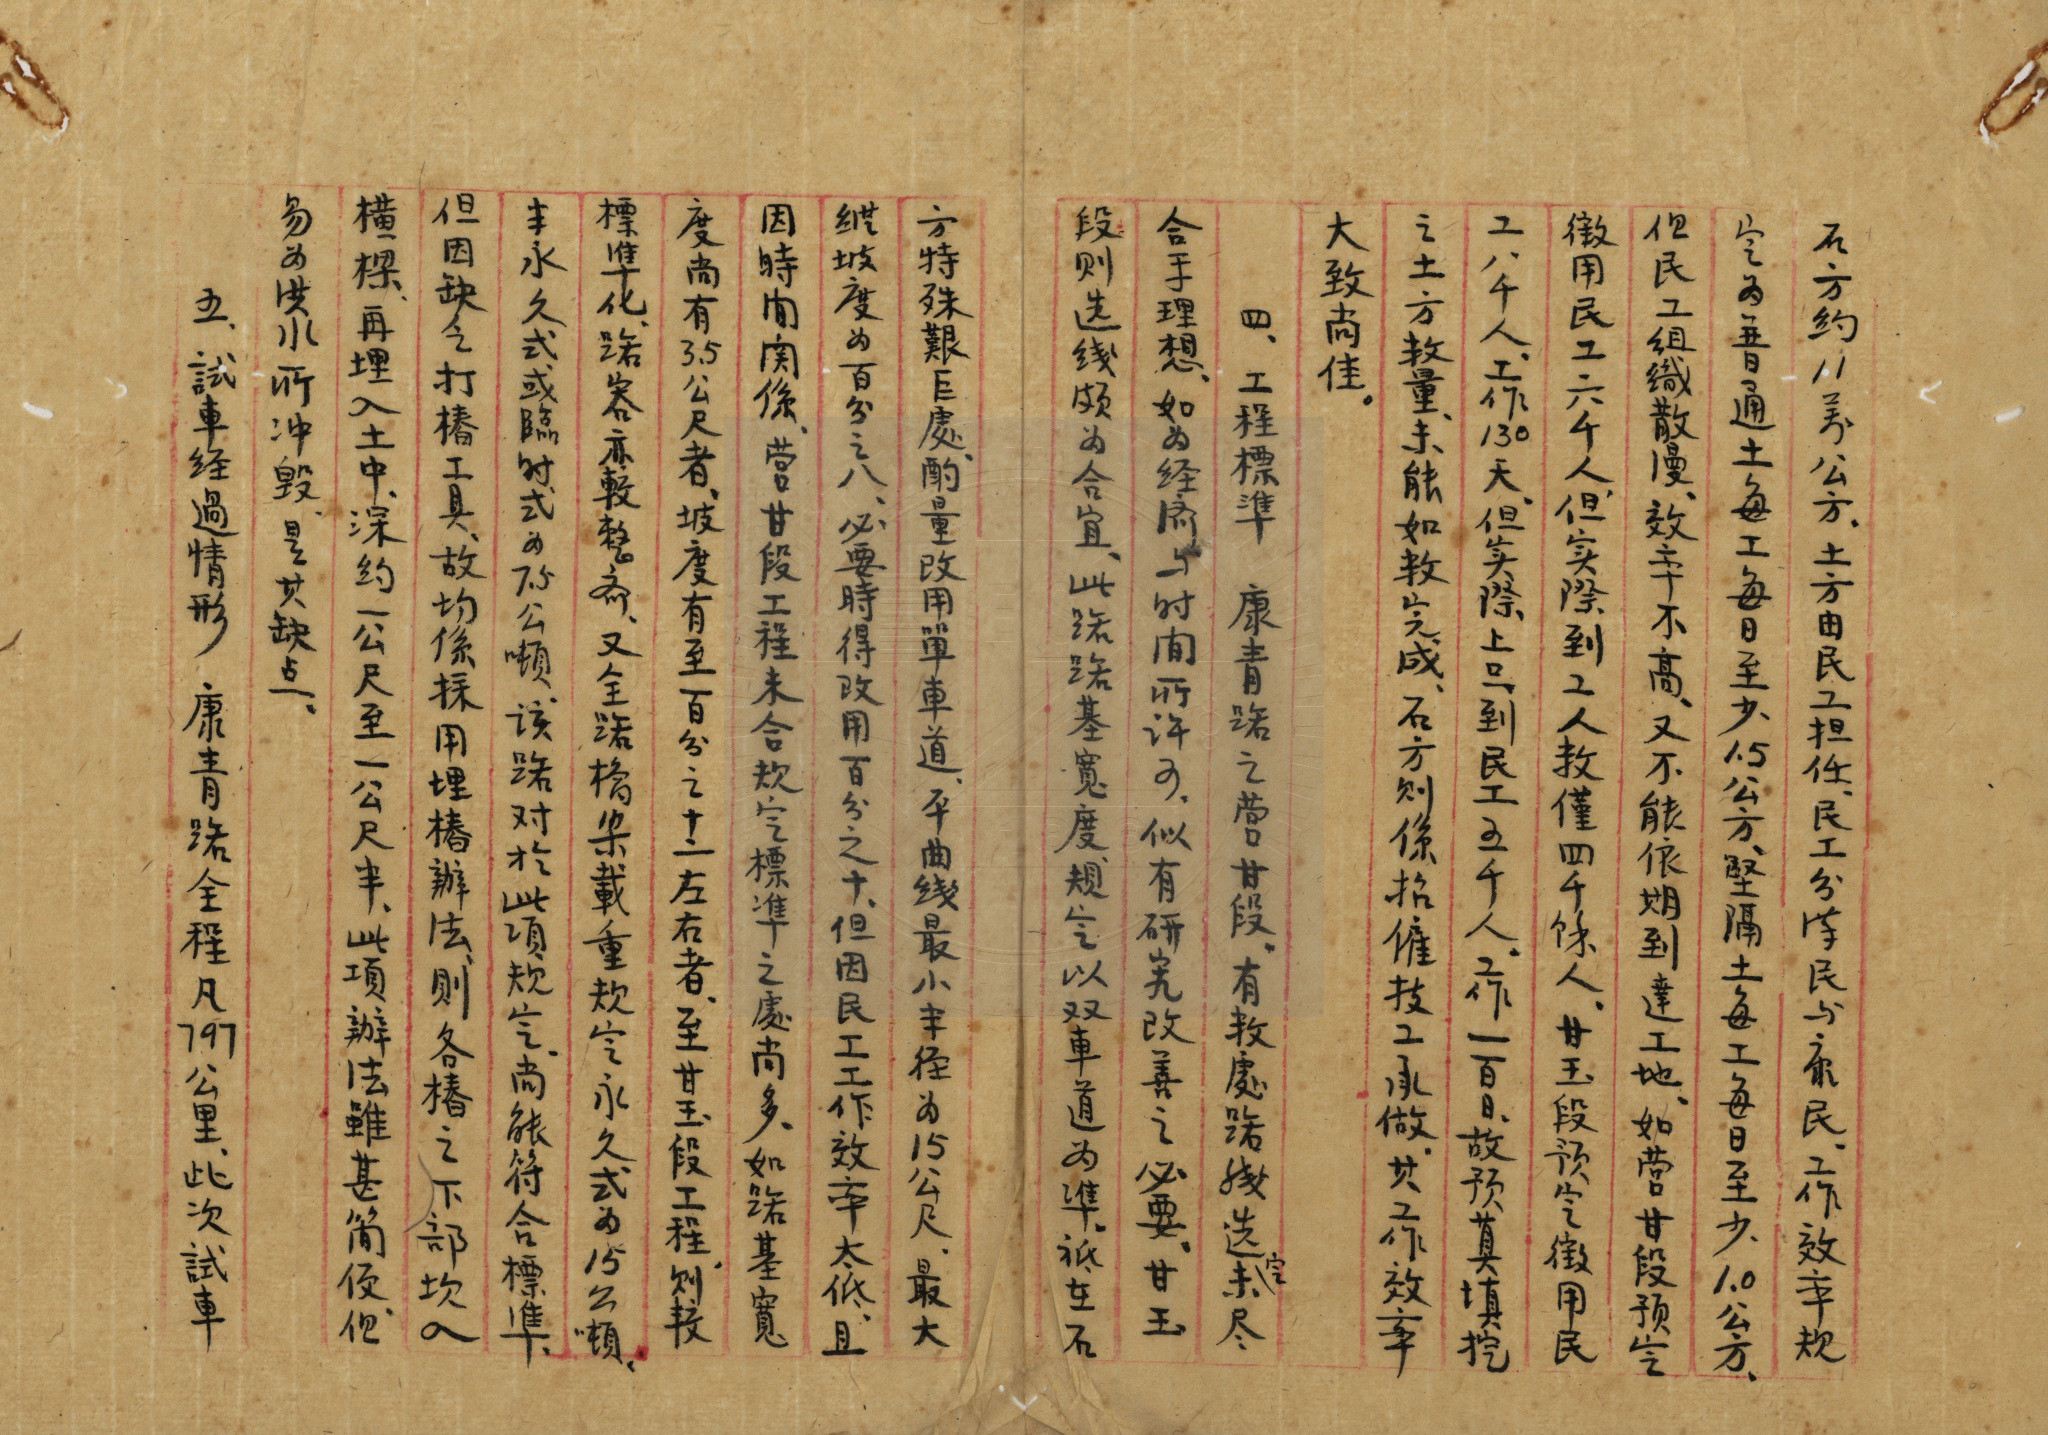 石方約11萬公方、土方由民工担任、民工分漢民与康民、工作效率規
定为普通土每工每日至少1.5公方、堅隔土每工每日至少1.0公方、
但民工組織散漫、效率不高、又不能依期到達工地、如营甘段预定
徵用民工六千人、但实際到工人数僅四千餘人、甘玉段预定徵用民
工八千人、工作130天、但实際上只到民工五千人、工作一百日、故预算填挖
之土方数量、未能如数完成、石方则係招僱技工承做、其工作效率
大致尚佳。
四、工程標準　康青路之营甘段、有数處路线选定未尽
合于理想、如为经济与时间所许可、似有研究改善之必要、甘玉
段则选线颇为合宜、此路路基寬度規定以双車道为準、祗在石
方特殊艱巨處、酌量改用單車道、平曲线最小半径为15公尺、最大
縱坡度为百分之八、必要時得改用百分之十、但因民工工作效率太低、且
因時間関係、营甘段工程未合規定標準之處尚多、如路基寬
度尚有3.5公尺者、坡度有至百分之十二左右者、至甘玉段工程、则較
標準化、路容亦較整齐、又全路橋梁載重規定永久式为15公噸、
半永久式或臨时式为7.5公噸、该路对於此項規定、尚能符合標準、
但因缺乏打樁工具、故均係採用埋樁辦法、則各樁之下部坎入
橫樑、再埋入土中、深約一公尺至一公尺半、此項辦法雖甚简便、但
易为洪水所冲毁、是其缺点、
五、試車经過情形　康青路全程凡797公里、此次試車